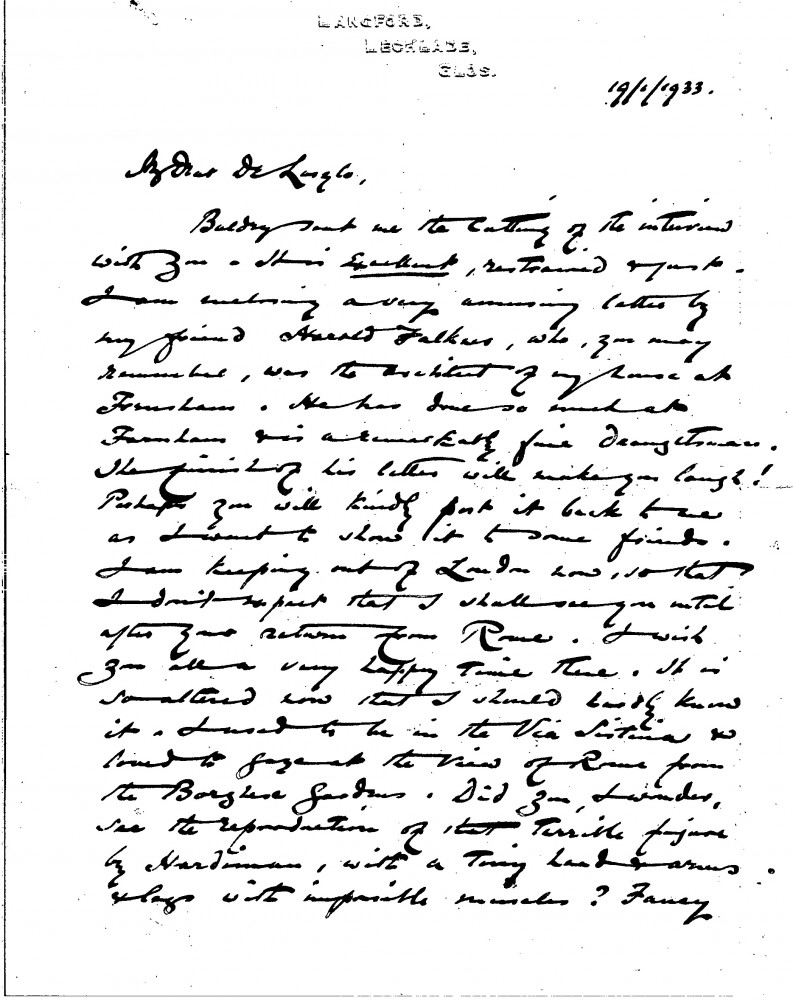 LANGFORD,
LECHLADE,
GLOS.
19/1/1933.
My dear De Laszlo,
Baldry sent me the cutting of the interview
with you. It is Excellent, restrained & just.
I am enclosing a very amusing letter by
my friend Harold Falkner, who, you may
remember, was the architect of my house at
Frensham. He has done so much at
Farnham & is a remarkably fine draughtsman.
The finish of his letter will make you laugh!
Perhaps you will kindly post it back to me
as I want to show it to some friends.
I am keeping out of London now, so that
I don't expect that I shall see you until
after your return from Rome. I wish
you all a very happy time there. It is
so altered now that I should hardly know
it. I used to be in the Via Sistina &
loved to gaze at the view of Rome from
the Borghese Gardens. Did you, I wonder,
see the reproduction of that terrible figure
by Hardiman, with a tiny head & arms
& legs with impossible muscles? Fancy